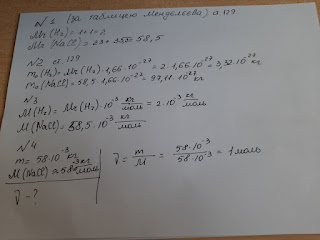 №1 (за таблицею Менделєєва) с. 129
Mr(H₂) = 1+1 = 2
Mr(NaCl) = 23 + 35,5 = 58,5
№2 ст. 129
m₀(H₂) = Mr(H₂)·1,66·10⁻²⁷ = 2·1,66·10⁻²⁷ = 3,32·10⁻²⁷ кг
m₀(NaCl) = 58,5·1,66·10⁻²⁷ = 97,11·10⁻²⁷ кг
№3
M(H₂) = Mr(H₂)·10⁻³ кг/моль = 2·10⁻³ кг/моль
M(NaCl) = 58,5·10⁻³ кг/моль
№4
m = 58·10⁻³ кг
M(NaCl) ≈ 58·10⁻³ кг/моль
ν = m/M = 58·10⁻³/58·10⁻³ = 1 моль
ν - ?